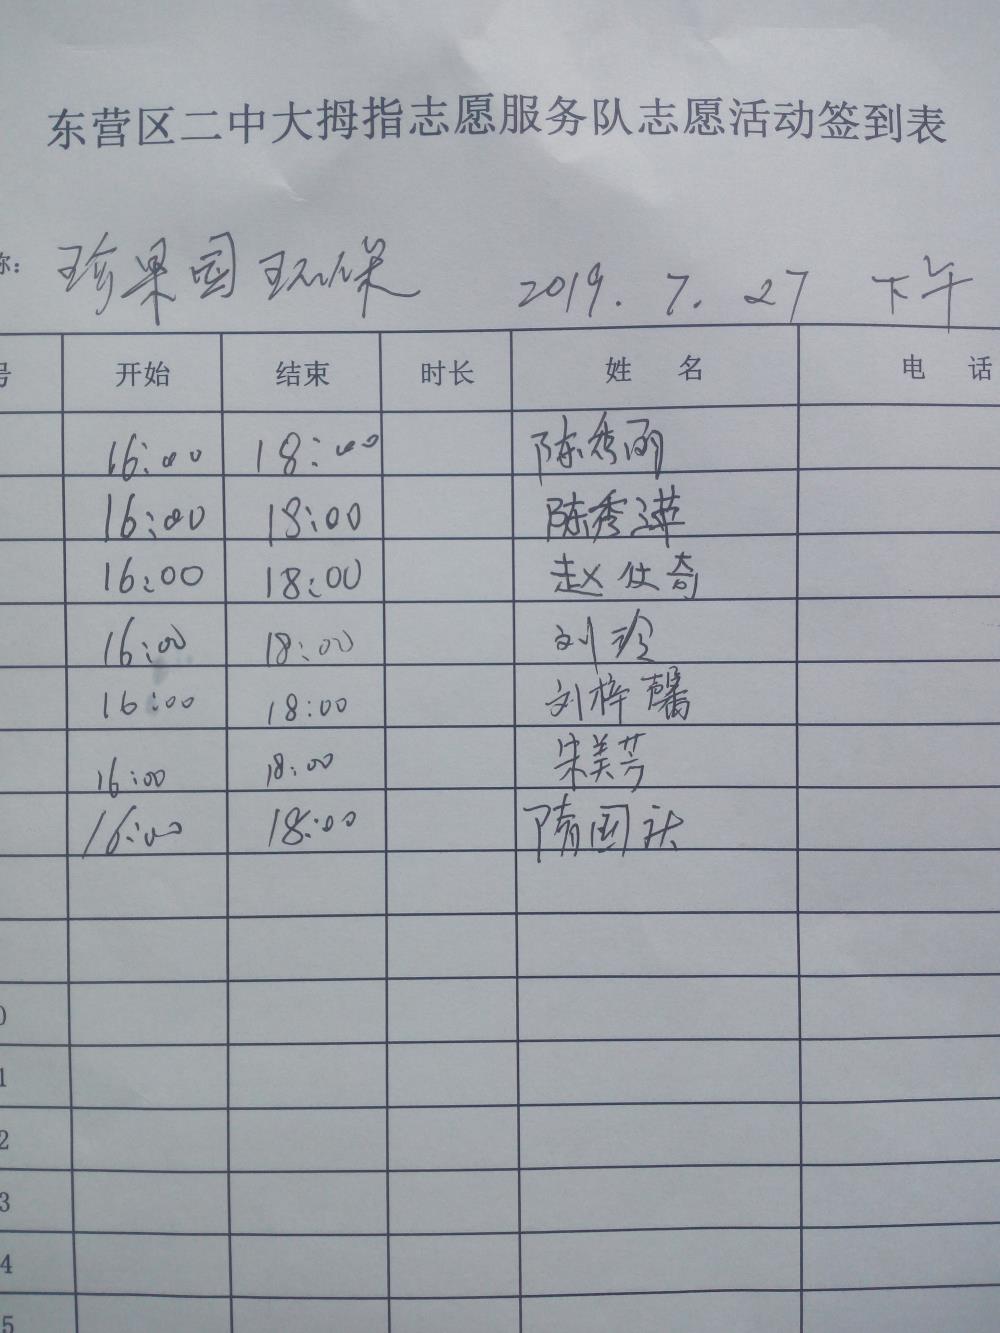 东营区二中大拇指志愿服务队志愿活动签到表
称: 珍果园环保 2019.7.27 下午
号 开始 结束 时长 姓名 电话
16:00 18:00 陈秀丽
16:00 18:00 陈秀瑛
16:00 18:00 赵仕奇
16:00 18:00 刘玲
16:00 18:00 刘梓馨
16:00 18:00 宋美芳
16:00 18:00 隋国
0
1
2
3
4
5